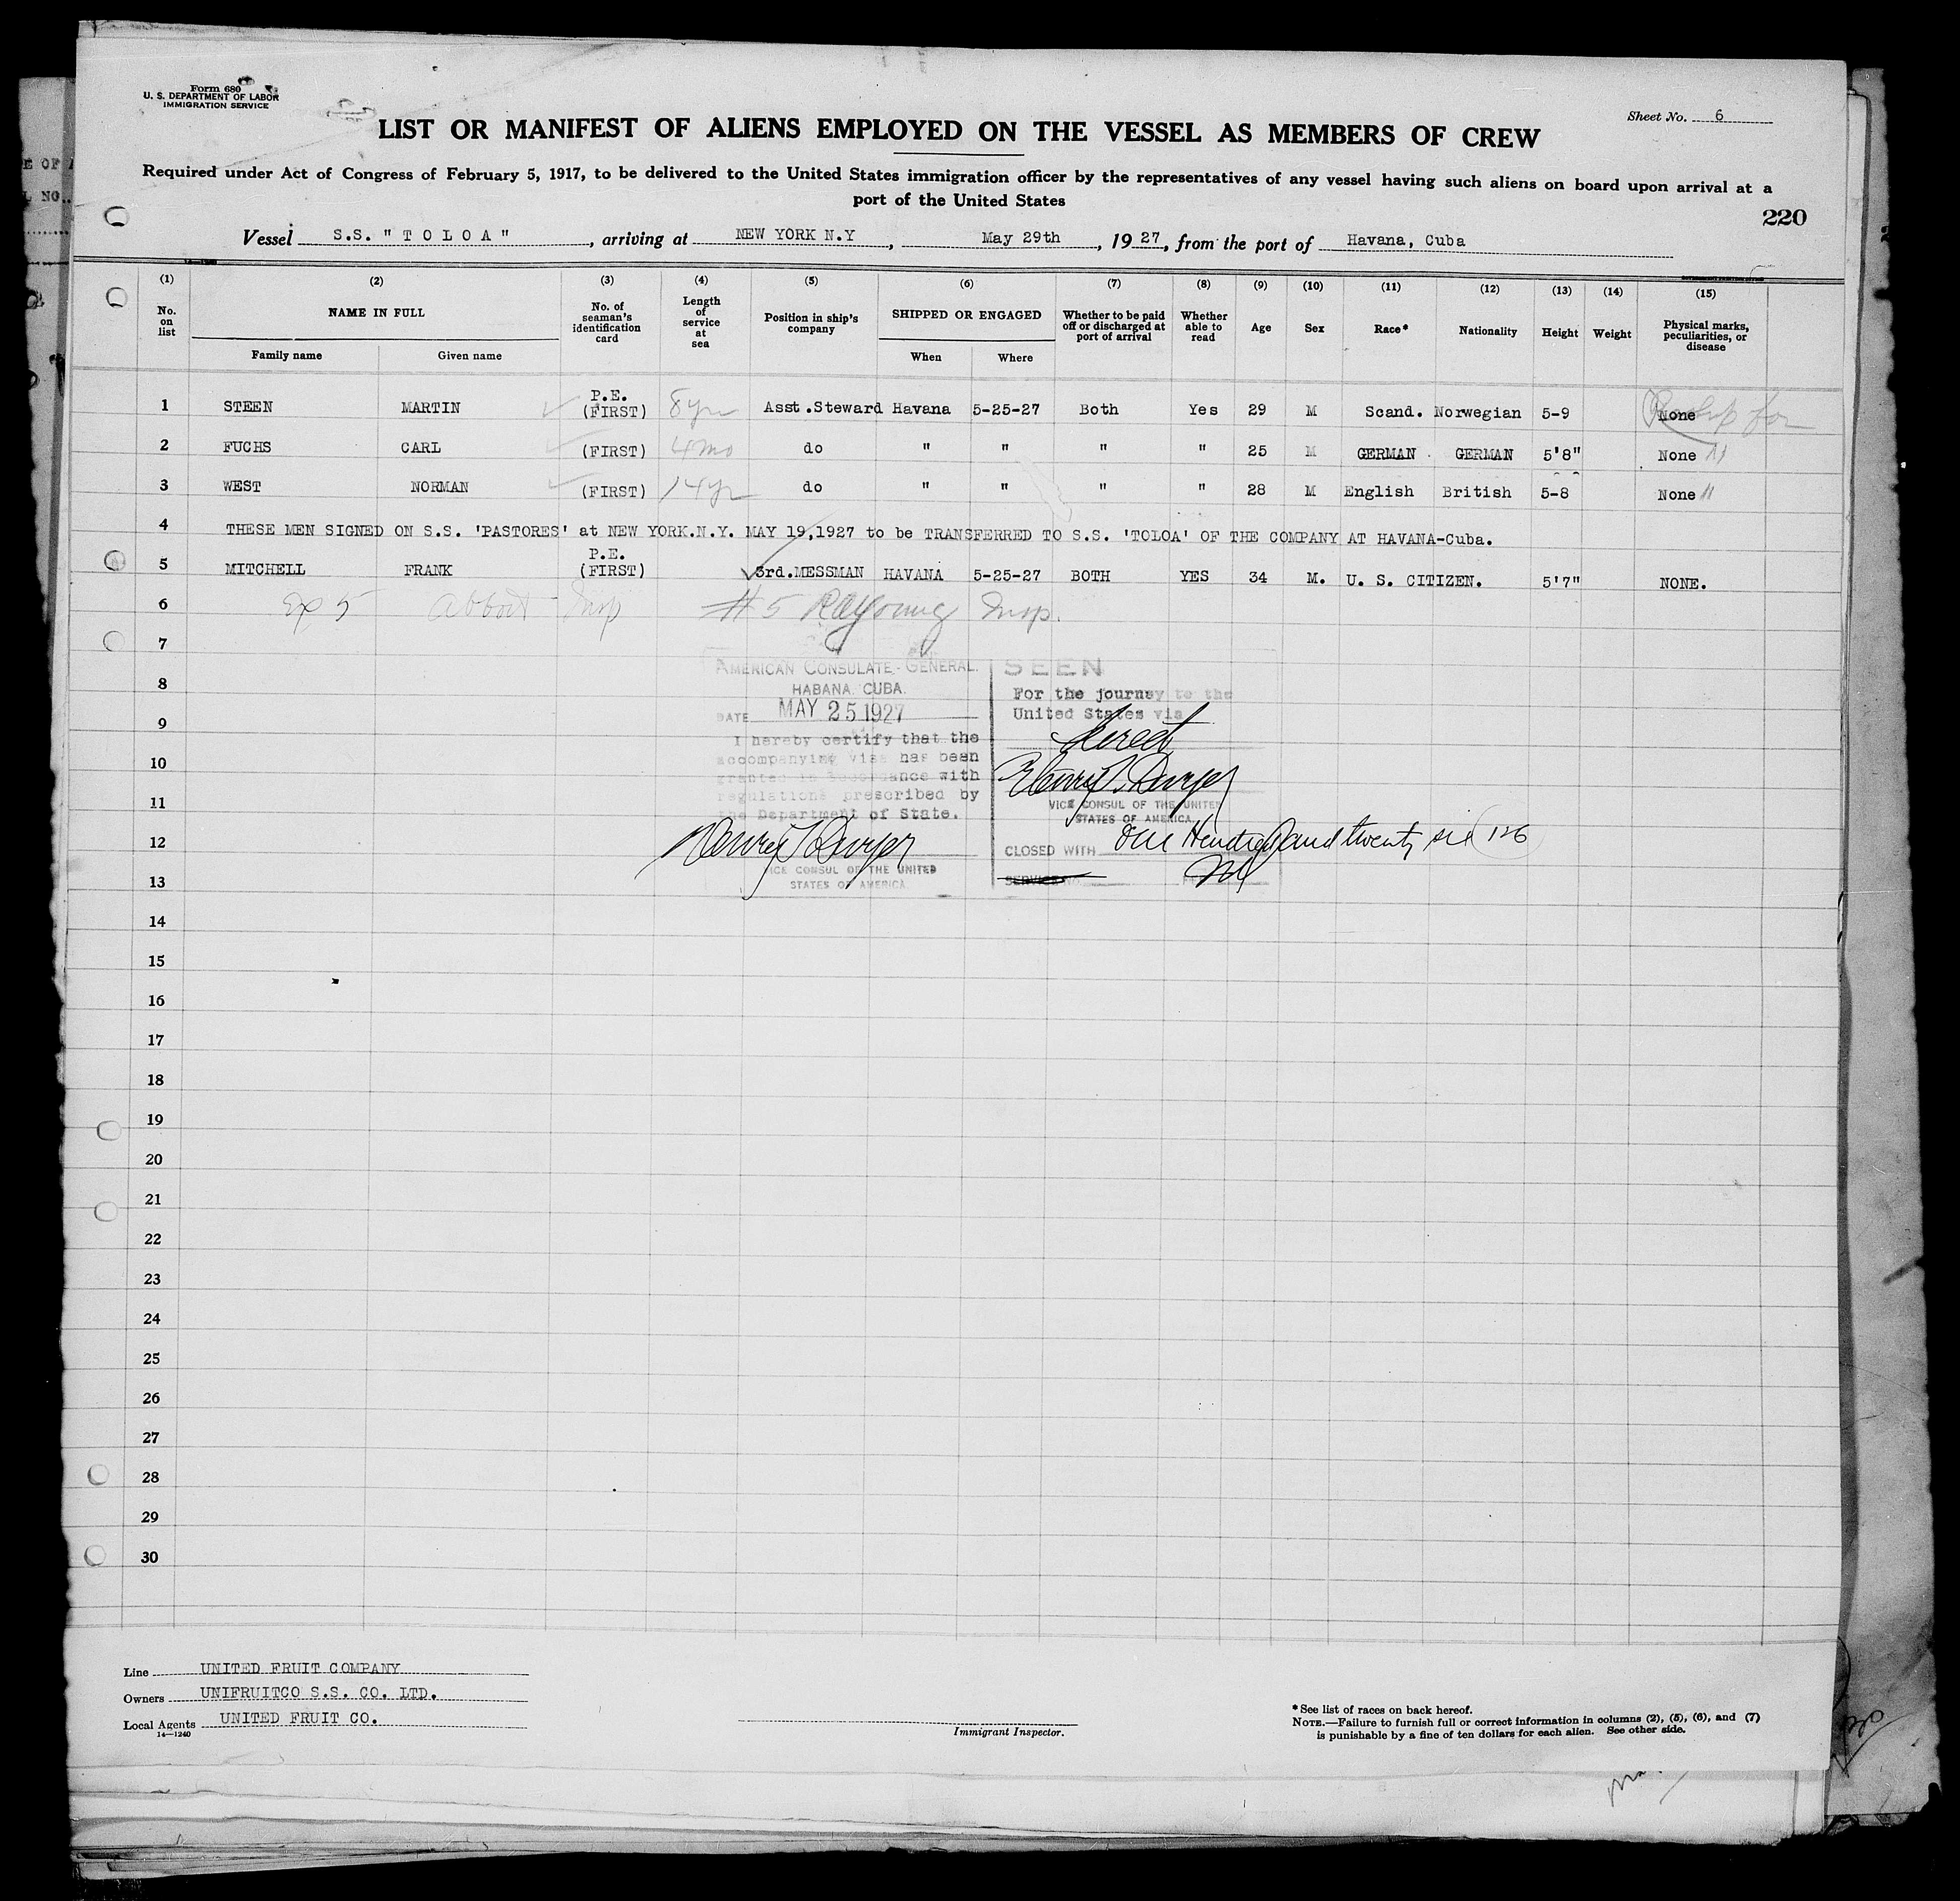 Form 680
U. S. DEPARTMENT OF LABOR
IMMIGRATION SERVICE
Sheet No. 6
LIST OR MANIFEST OF ALIENS EMPLOYED ON THE VESSEL AS MEMBERS OF CREW
Required under Act of Congress of February 5, 1917, to be delivered to the United States immigration officer by the representatives of any vessel having such aliens on board upon arrival at a
port of the United States
220
Vessel S.S. "TOLOA", arriving at NEW YORK N.Y, May 29th, 1927, from the port of Havana, Cuba
(1) (2) (3) (4) (5) (6) (7) (8) (9) (10) (11) (12) (13) (14) (15)
No. on list NAME IN FULL Family name Given name No. of seaman's identification card Length of service at sea Position in ship's company SHIPPED OR ENGAGED When Where Whether to be paid off or discharged at port of arrival Whether able to read Age Sex Race* Nationality Height Weight Physical marks, peculiarities, or disease
1 STEEN MARTIN P.E. (FIRST) 8 yr Asst.Steward Havana 5-25-27 Both Yes 29 M Scand. Norwegian 5-9 None
2 FUCHS CARL (FIRST) 4 mo do " " " " 25 M GERMAN GERMAN 5'8" None "
3 WEST NORMAN (FIRST) 14 yr do " " " " 28 M English British 5-8 None "
4 THESE MEN SIGNED ON S.S. 'PASTORES' at NEW YORK.N.Y. MAY 19,1927 to be TRANSFERRED TO S.S. 'TOLOA' OF THE COMPANY AT HAVANA-Cuba.
5 MITCHELL FRANK P.E. (FIRST) 3rd.MESSMAN HAVANA 5-25-27 BOTH YES 34 M. U. S. CITIZEN. 5'7" NONE.
6 Ex 5 Abbott Insp #5 RAYoung Insp.
7
8
9
10
11
12
13
14
15
16
17
18
19
20
21
22
23
24
25
26
27
28
29
30
AMERICAN CONSULATE-GENERAL.
HABANA. CUBA.
DATE MAY 25 1927
I hereby certify that the
accompanying visa has been
granted in accordance with
regulations prescribed by
the Department of State.
Henry T Dwyer
VICE CONSUL OF THE UNITED
STATES OF AMERICA
SEEN
For the journey to the
United States via
direct
Henry T. Dwyer
VICE CONSUL OF THE UNITED
STATES OF AMERICA.
CLOSED WITH One Hundred and twenty six 126
SERVICE NO.
Line UNITED FRUIT COMPANY
Owners UNIFRUITCO S.S. CO. LTD.
Local Agents UNITED FRUIT CO.
14—1240
Immigrant Inspector.
*See list of races on back hereof.
NOTE.—Failure to furnish full or correct information in columns (2), (5), (6), and (7)
is punishable by a fine of ten dollars for each alien. See other side.